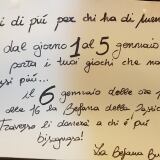 i di più per chi ha di meno
dal giorno 1 al 5 gennaio
porta i tuoi giochi che non
usi più...
il 6 gennaio delle ore
alle 16 la Befana della
Traverso li donerà a chi è più
bisognoso!
La Befana